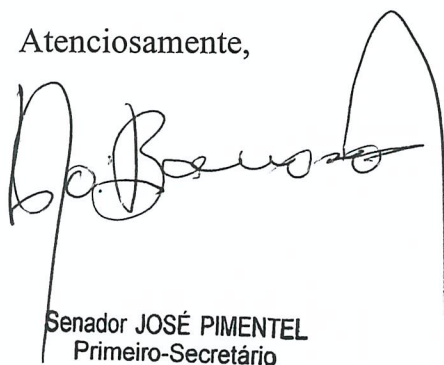 Atenciosamente,
Senador JOSÉ PIMENTEL
Primeiro-Secretário